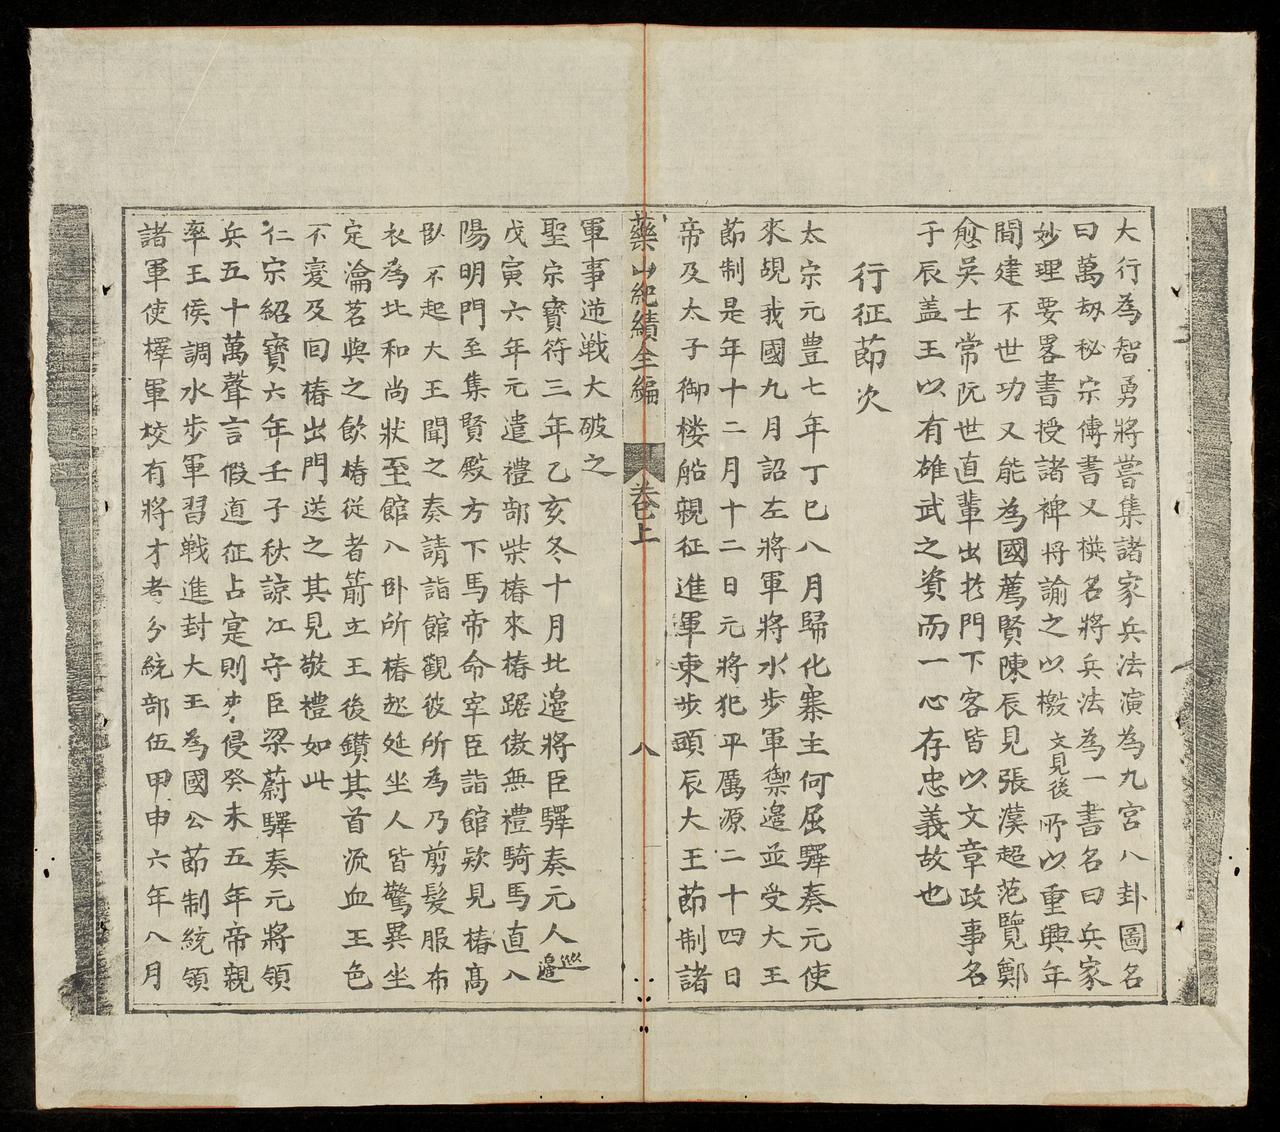 大行為智勇將嘗集諸家兵法演為九宮八卦圖名
曰萬刼秘宗傳書又摸名將兵法為一書名曰兵家
妙理要畧書授諸裨將諭之以檄文見後所以重興年
間建不世功又能為國薦賢陳辰見張漢超范覽鄭
愈吳士常阮世直輩出於門下客皆以文章政事名
于辰盖王以有雄武之資而一心存忠義故也
行征節次
太宗元豊七年丁巳八月歸化寨主何屈驛奏元使
來覘我國九月詔左將軍將水步軍禦邉並受大王
節制是年十二月十二日元將犯平厲源二十四日
帝及太子御楼船親征進軍東步頭辰大王節制諸
藥山紀績全編 卷上 八
軍事逆戦大破之
聖宗寳符三年乙亥冬十月北邉將臣驛奏元人巡邉
戊寅六年元遣禮部柴椿來椿踞傲無禮騎馬直入
陽明門至集賢殿方下馬帝命宰臣詣館欵見椿髙
卧不起大王聞之奏請詣館觀彼所為乃剪髮服布
衣為北和尚狀至館入卧所椿起延坐人皆驚異坐
定瀹茗與之飲椿從者箭立王後鑚其首流血王色
不変及囬椿出門送之其見敬禮如此
仁宗紹寳六年壬子秋諒江守臣梁蔚驛奏元將領
兵五十萬聲言假道征占寔則来侵癸未五年帝親
率王侯調水步軍習戦進封大王為國公節制統領
諸軍使擇軍校有將才者分統部伍甲申六年八月